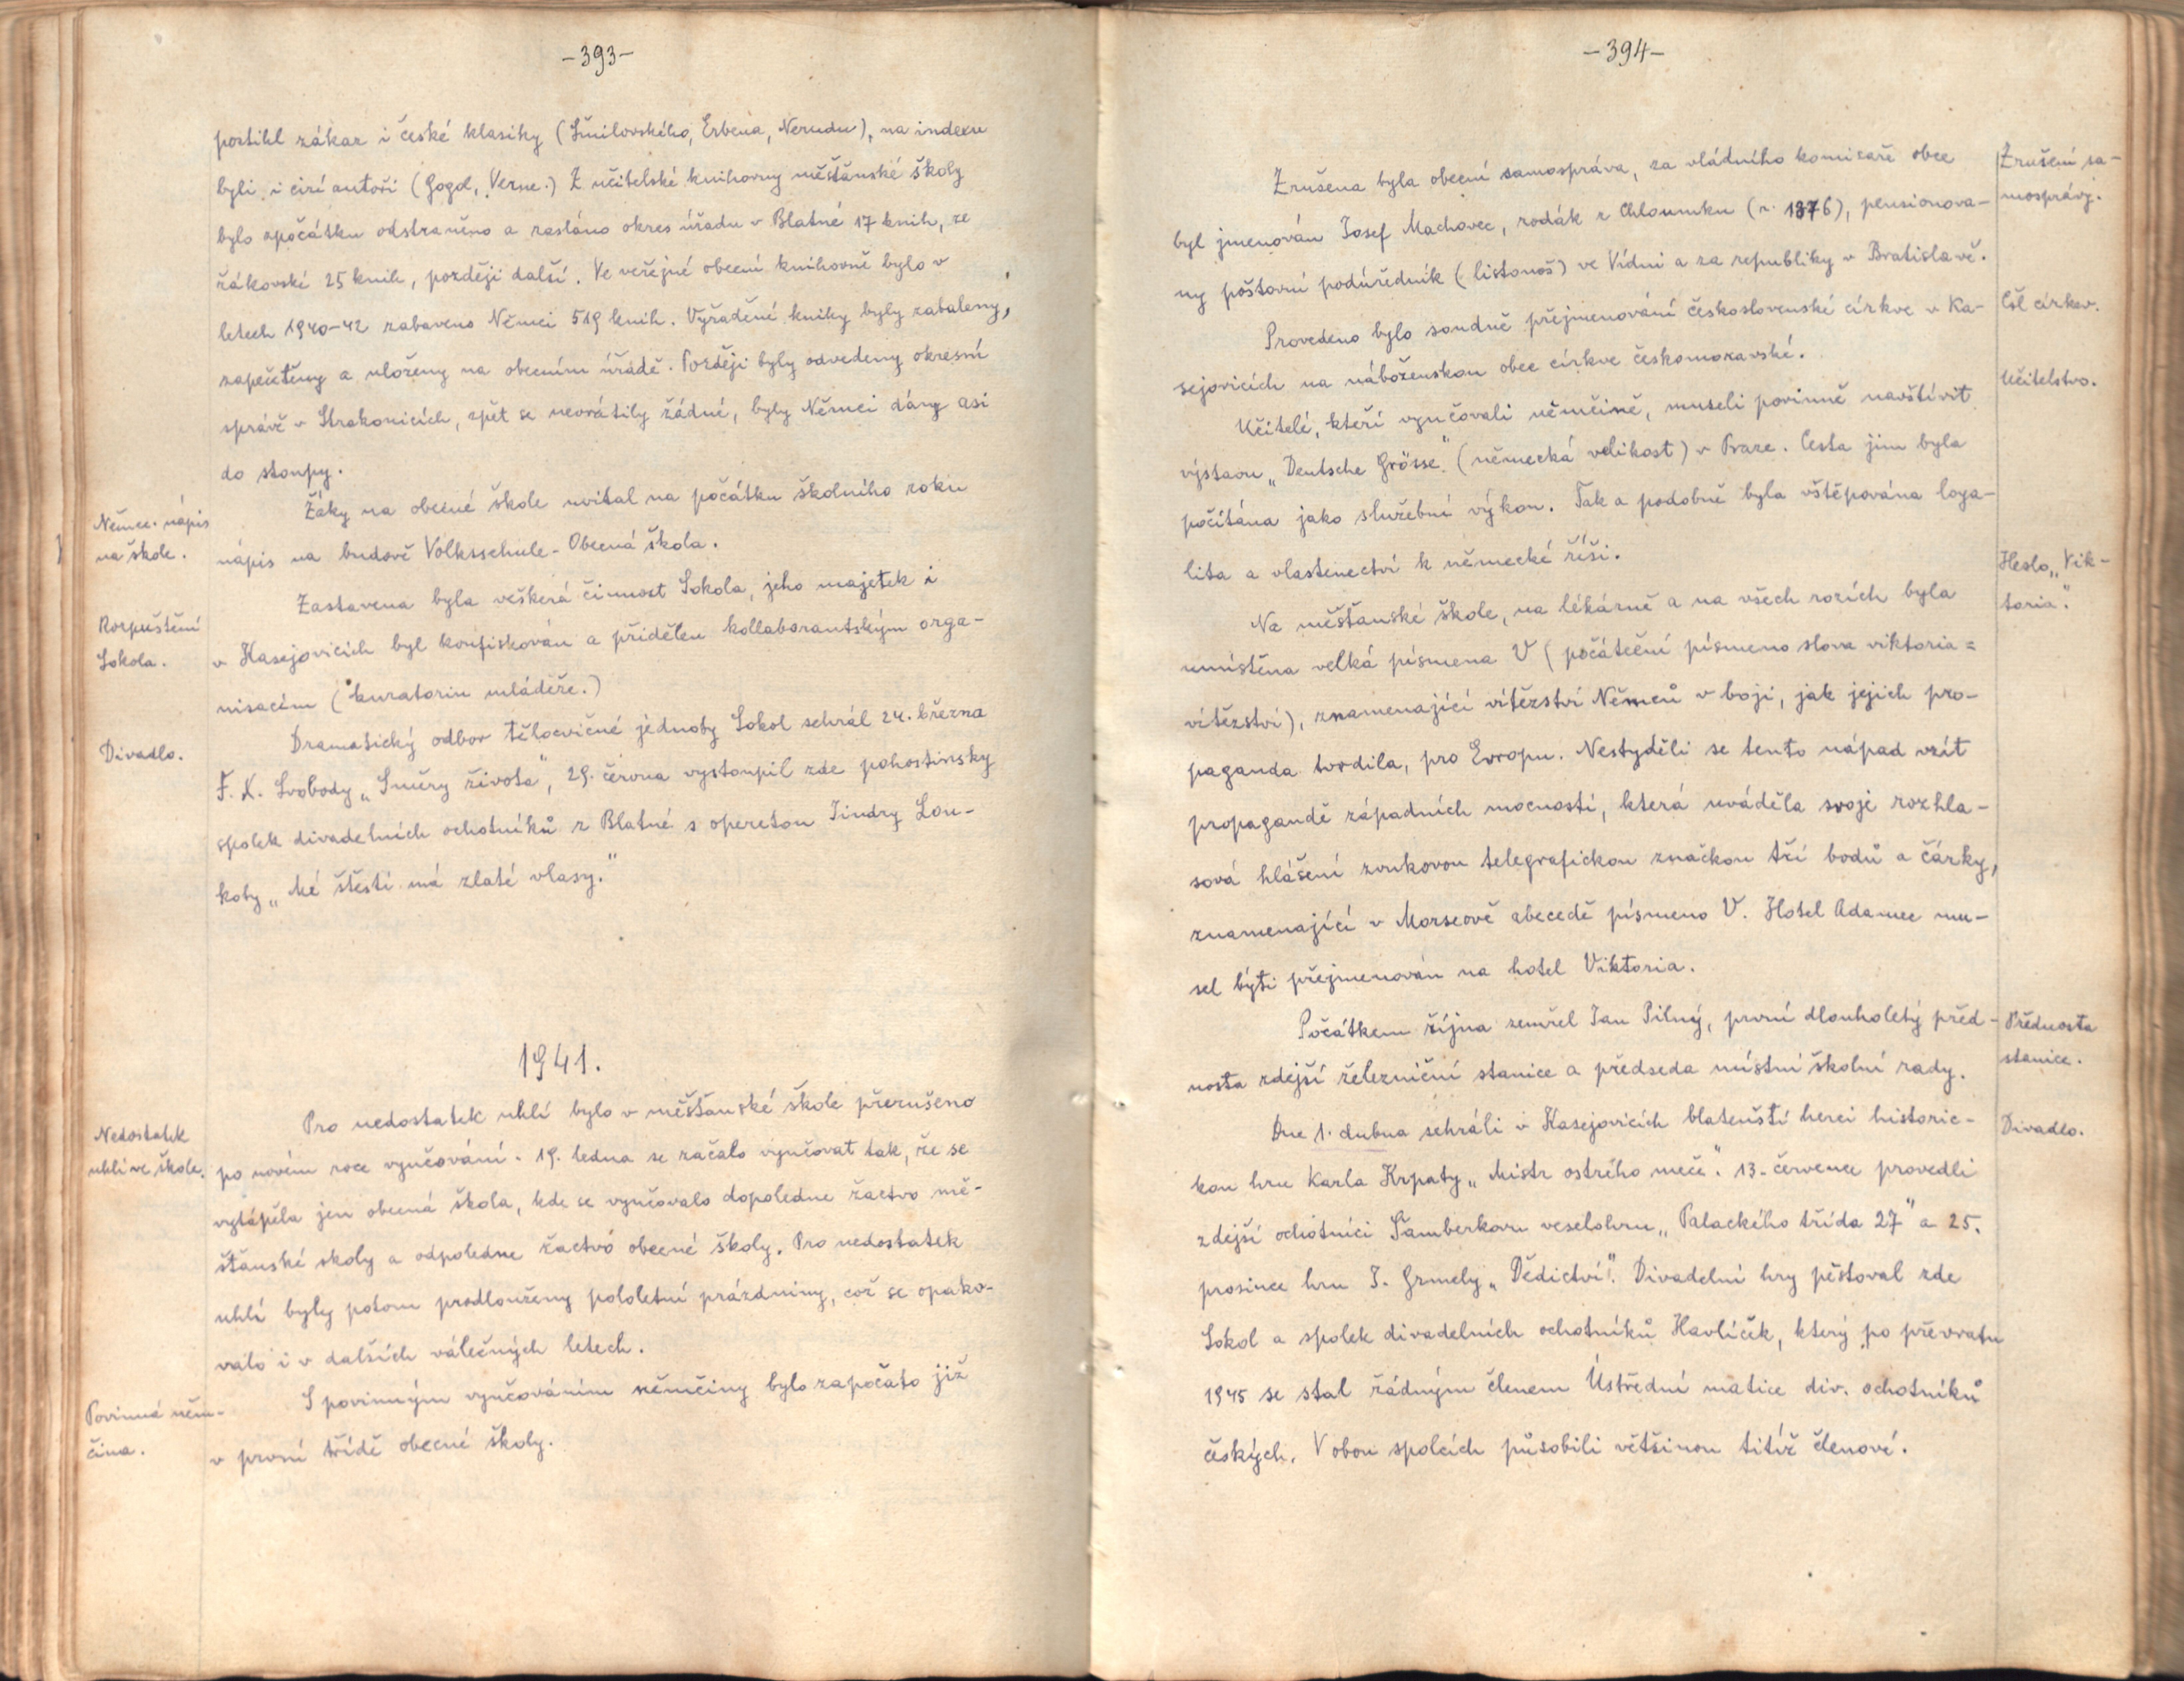 -393-
postihl zákaz i české klasiky (Šmilovského, Erbena, Nerudu), na indexu
byli i cizí autoři (Gogol, Verne.) Z učitelské knihovny měšťanské školy
bylo zpočátku odstraněno a zasláno okres úřadu v Blatné 17 knih, ze
žákovské 25 knih, později další. Ve veřejné obecní knihovně bylo v
letech 1940-42 zabaveno Němci 519 knih. Vyřaděné knihy byly zabaleny,
zapečetěny a uloženy na obecním úřádě. Později byly odvedeny okresní
správě v Strakonicích, zpět se nevrátily žádné, byly Němci dány asi
do stoupy.
Němec. nápis
na škole.
Žáky na obecné škole uvítal na počátku školního roku
nápis na budově Volksschule - Obecná škola.
Rozpuštění
Sokola.
Zastavena byla veškerá činnost Sokola, jeho majetek i
v Kasejovicích byl konfiskován a přidělen kollaborantským orga-
nisacím (kuratoriu mládeže.)
Divadlo.
Dramatický odbor tělocvičné jednoty Sokol sehrál 24. března
F. X. Svobody „Směry života", 29. června vystoupil zde pohostinsky
spolek divadelních ochotníků z Blatné s operetou Jindry Lou-
koty „Mé štěstí má zlaté vlasy."
1941.
Nedostatek
uhlí ve škole.
Pro nedostatek uhlí bylo v měšťanské škole přerušeno
po novém roce vyučování. 19. ledna se začalo vyučovat tak, že se
vytápěla jen obecná škola, kde se vyučovalo dopoledne žactvo mě-
šťanské školy a odpoledne žactvo obecné školy. Pro nedostatek
uhlí byly potom prodlouženy pololetní prázdniny, což se opako-
valo i v dalších válečných letech.
Povinná něm-
čina.
S povinným vyučováním němčiny bylo započato již
v první třídě obecné školy.
-394-
Zrušení sa-
mosprávy.
Zrušena byla obecní samospráva, za vládního komisaře obce
byl jmenován Josef Machovec, rodák z Chloumku (n. 1876), pensionova-
ný poštovní podúředník (listonoš) ve Vídni a za republiky v Bratislavě.
Čsl církev.
Provedeno bylo soudně přejmenování československé církve v Ka-
sejovicích na náboženskou obec církve českomoravské.
Učitelstvo.
Učitelé, kteří vyučovali němčině, museli povinně navštívit
výstavu „Deutsche Grösse" (německá velikost) v Praze. Cesta jim byla
počítána jako služební výkon. Tak a podobně byla vštěpována loya-
lita a vlastenectví k německé říši.
Heslo „Vik-
toria".
Na měšťanské škole, na lékárně a na všech rozích byla
umístěna velká písmena V (počáteční písmeno slova viktoria =
vítězství), znamenající vítězství Němců v boji, jak jejich pro-
paganda tvrdila, pro Evropu. Nestyděli se tento nápad vzít
propagandě západních mocností, která uváděla svoje rozhla-
sová hlášení zvukovou telegrafickou značkou tří bodů a čárky,
znamenající v Morseově abecedě písmeno V. Hotel Adamec mu-
sel býti přejmenován na hotel Viktoria.
Přednosta
stanice.
Počátkem října zemřel Jan Pilný, první dlouholetý před-
nosta zdejší železniční stanice a předseda místní školní rady.
Divadlo.
Dne 1. dubna sehráli v Kasejovicích blatenští herci historic-
kou hru Karla Krpaty „Mistr ostrého meče". 13. července provedli
zdejší ochotníci Šamberkovu veselohru „Palackého třída 27" a 25.
prosince hru J. Grmely „Dědictví". Divadelní hry pěstoval zde
Sokol a spolek divadelních ochotníků Havlíček, který po převratu
1945 se stal řádným členem Ústřední matice div. ochotníků
českých. V obou spolcích působili většinou titíž členové.